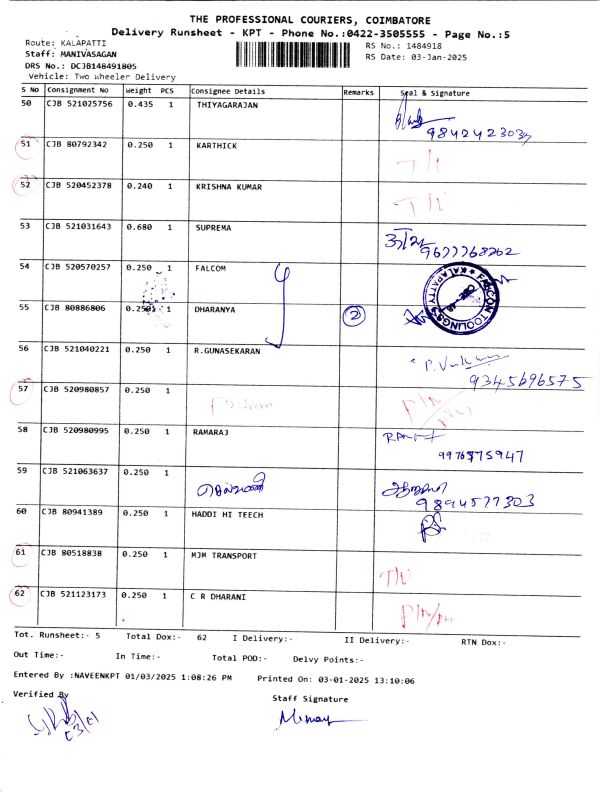 THE PROFESSIONAL COURIERS, COIMBATORE
Delivery Runsheet - KPT - Phone No.:0422-3505555 - Page No.:5
Route: KALAPATTI
RS No.: 1484918
Staff: MANIVASAGAN
RS Date: 03-Jan-2025
DRS No.: DCJB148491805
Vehicle: Two Wheeler Delivery
S No Consignment No Weight PCS Consignee Details Remarks Seal & Signature
50 CJB 521025756 0.435 1 THIYAGARAJAN
51 CJB 80792342 0.250 1 KARTHICK
52 CJB 520452378 0.240 1 KRISHNA KUMAR
53 CJB 521031643 0.680 1 SUPREMA
9677768262
54 CJB 520570257 0.250 1 FALCOM
FALCON TOOLINGS
55 CJB 80886806 0.250 1 DHARANYA 2
56 CJB 521040221 0.250 1 R.GUNASEKARAN
9345696575
57 CJB 520980857 0.250 1
58 CJB 520980995 0.250 1 RAMARAJ
59 CJB 521063637 0.250 1
9894577303
60 CJB 80941389 0.250 1 HADDI HI TEECH
61 CJB 80518838 0.250 1 MJM TRANSPORT
62 CJB 521123173 0.250 1 C R DHARANI
Tot. Runsheet:- 5 Total Dox:- 62 I Delivery:- II Delivery:- RTN Dox:-
Out Time:- In Time:- Total POD:- Delvy Points:-
Entered By :NAVEENKPT 01/03/2025 1:08:26 PM Printed On: 03-01-2025 13:10:06
Verified By
Staff Signature
03/01